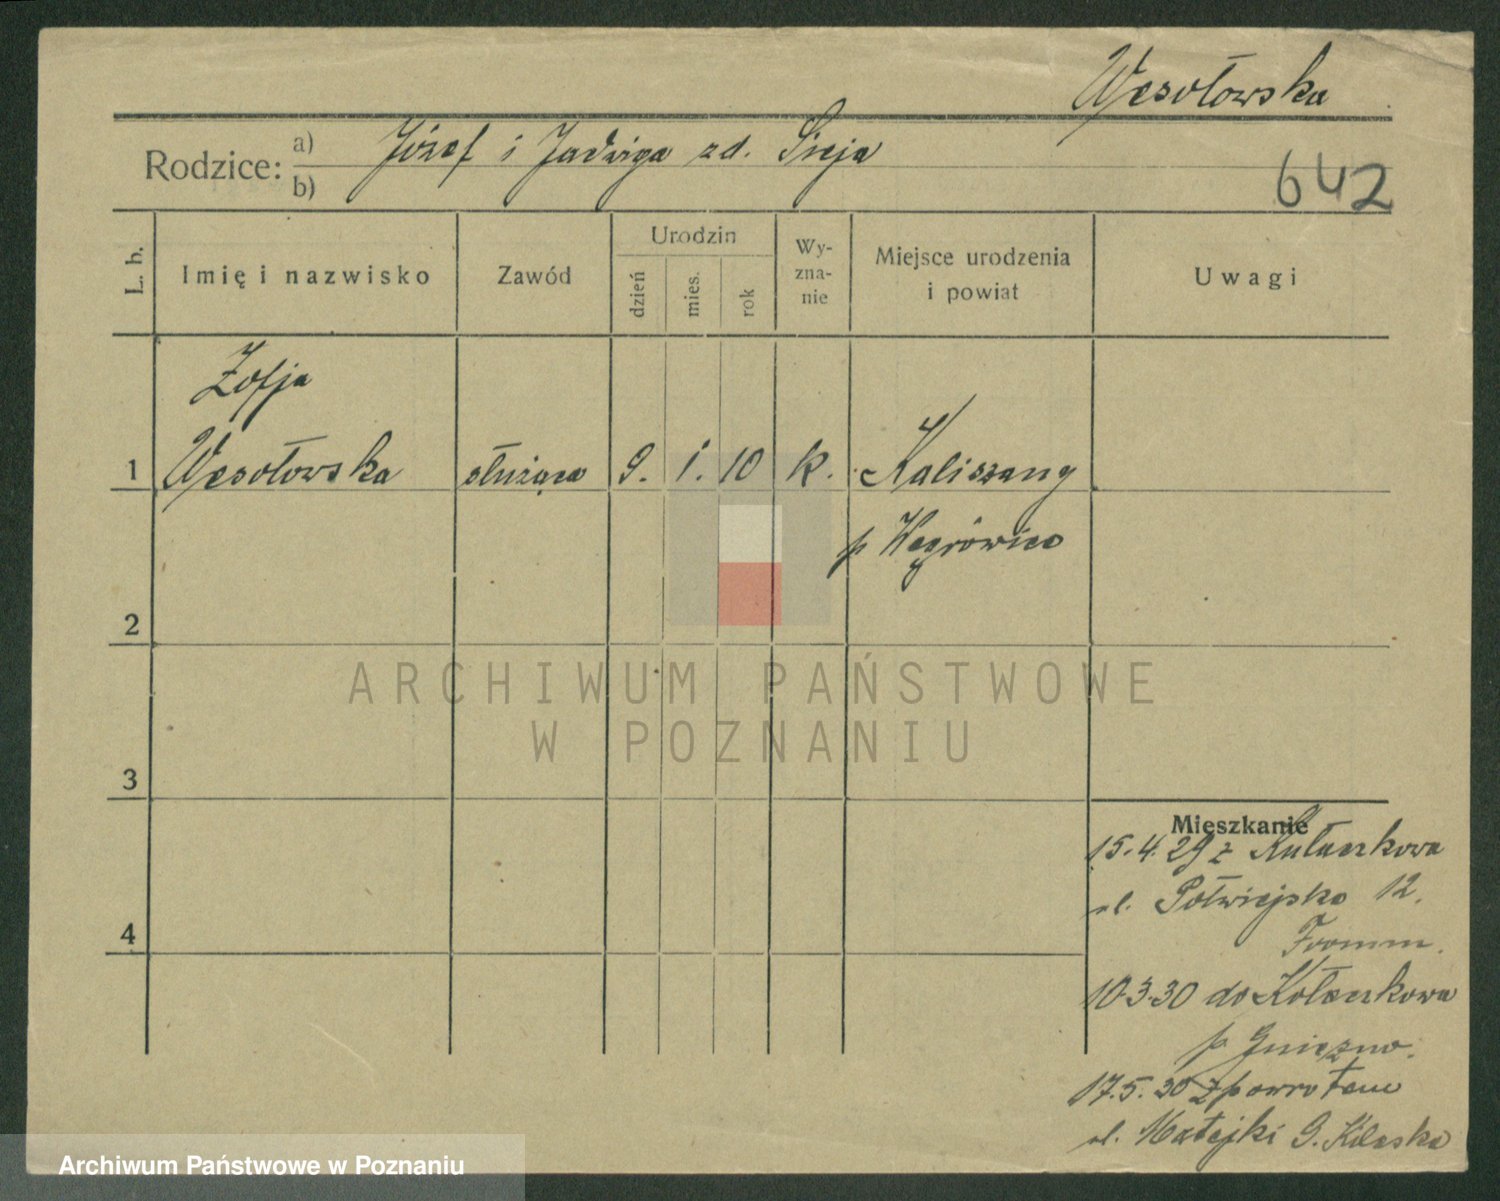 Wesołowska
Rodzice: a) Józef i Jadwiga zd. Sieja
b)
642
L. b.
Imię i nazwisko
Zawód
Urodzin
dzień
mies.
rok
Wy-
zna-
nie
Miejsce urodzenia
i powiat
Uwagi
Zofja
1 Wesołowska służąca 9. 1. 10 k. Kaliszany
p Wągrówiec
2
3
4
ARCHIWUM PAŃSTWOWE
W POZNANIU
Mieszkanie
15.4.29 z Kołaczkowa
ul. Półwiejska 12.
Fromm.
10.3.30 do Kołaczkowa
p Gniezno.
17.5.30 z powrotem
ul. Matejki
Archiwum Państwowe w Poznaniu